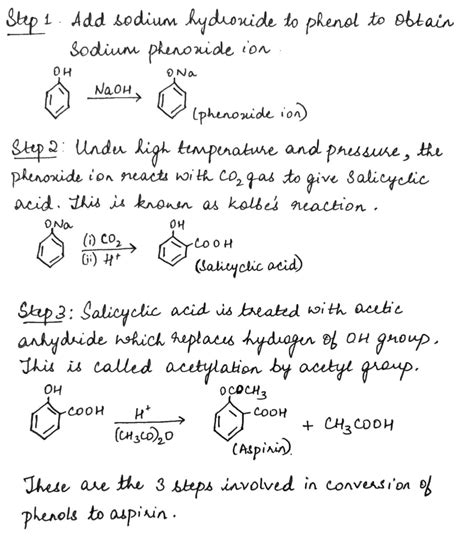 Step 1 : Add sodium hydroxide to phenol to obtain
Sodium phenoxide ion.
OH
ONa
NaOH
(phenoxide ion)
Step 2 : Under high temperature and pressure, the
phenoxide ion reacts with CO2 gas to give Salicyclic
acid. This is known as kolbe's reaction.
ONa
(i) CO2
(ii) H+
OH
COOH
(Salicyclic acid)
Step 3 : Salicyclic acid is treated with acetic
anhydride which replaces hydrogen of OH group.
This is called acetylation by acetyl group.
OH
COOH
H+
(CH3CO)2O
OCOCH3
COOH
+ CH3COOH
(Aspirin).
These are the 3 steps involved in conversion of
phenols to aspirin.